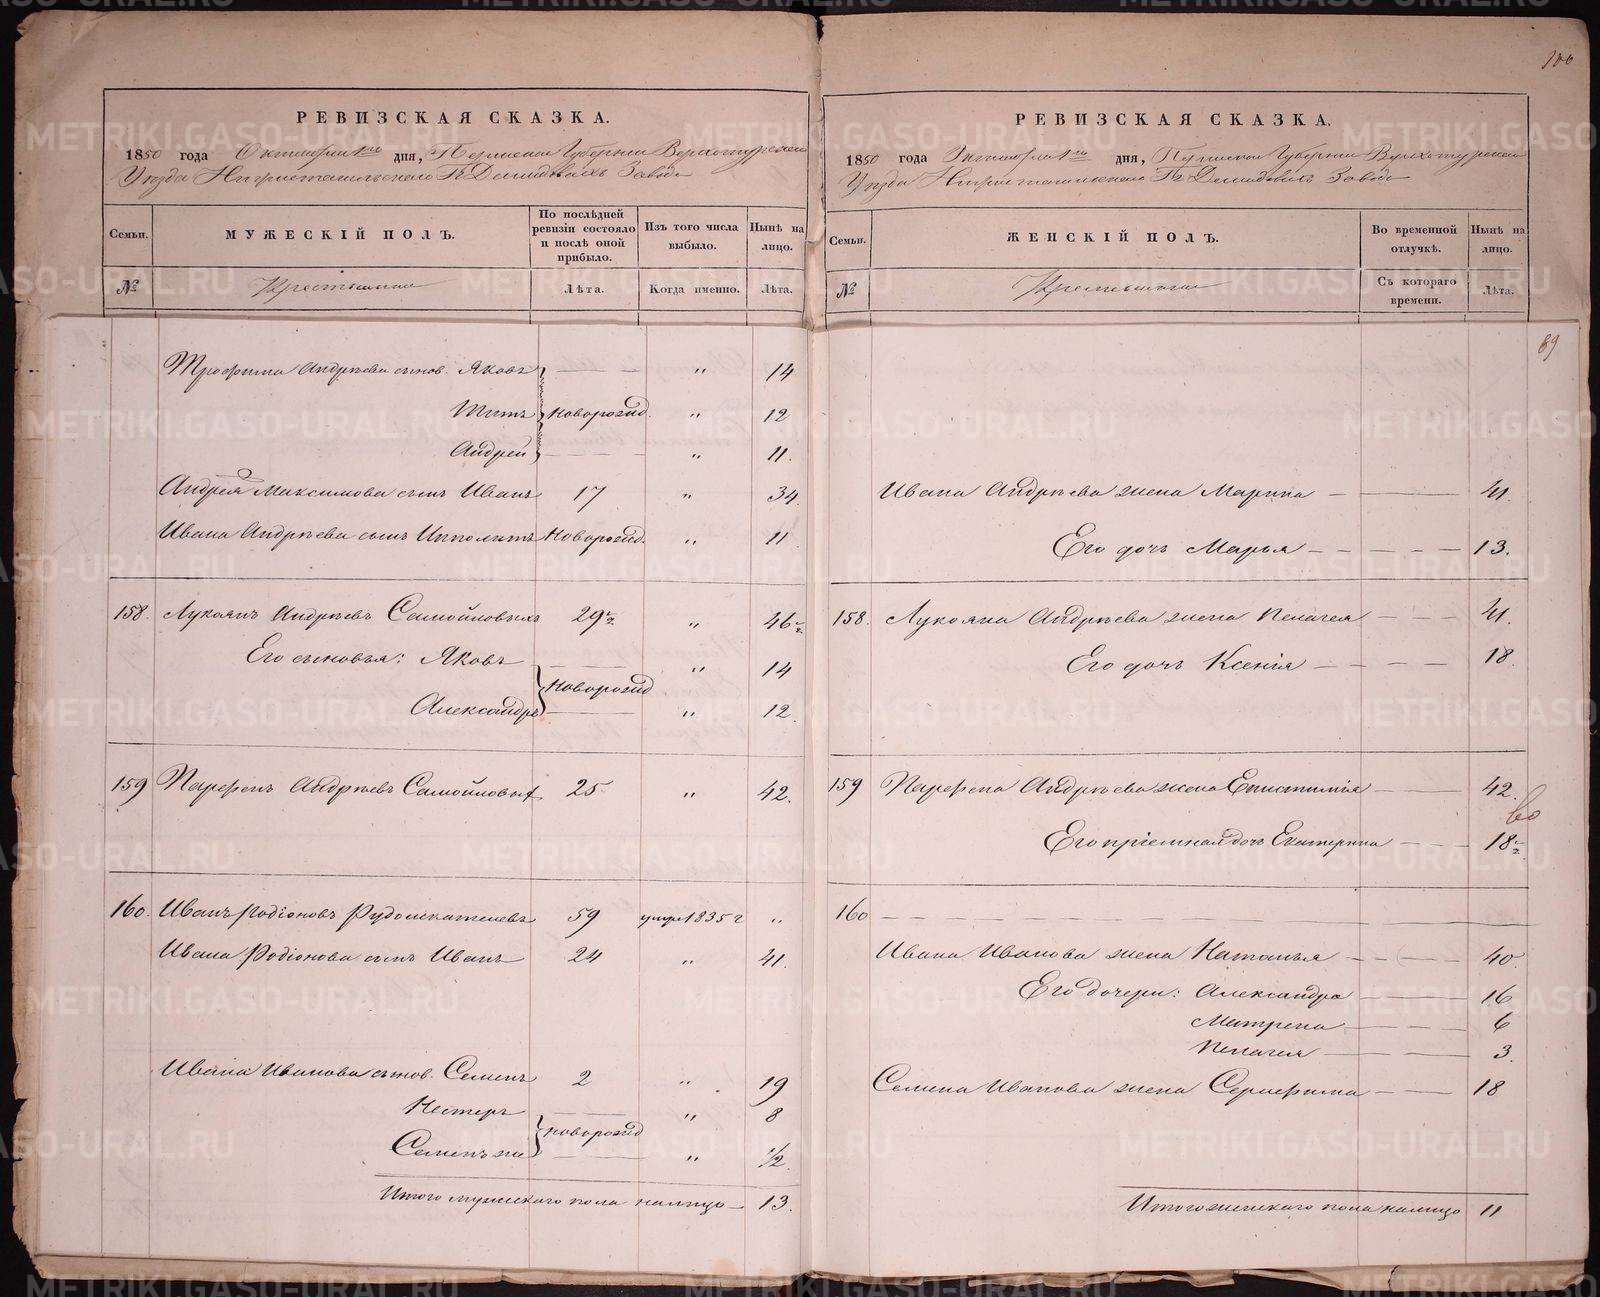 100
РЕВИЗСКАЯ СКАЗКА.
1850 года Октября дня, Пермской Губернии Верхотурскаго
Уѣзда Нижнетагильскаго Гг. Демидовыхъ Завода
Семьи. МУЖЕСКІЙ ПОЛЪ. По послѣдней ревизіи состояло и послѣ оной прибыло. Изъ того числа выбыло. Нынѣ на лицо.
№ Крестьяне Лѣта. Когда именно. Лѣта.
Трофима Андрѣева сынов. Яковъ — — " 14
Титъ Новорожд. " 12
Андрей — — " 11.
Андрея Максимова сынъ Иванъ 17 " 34
Ивана Андрѣева сынъ Ипполитъ Новорожд. " 11
158. Лукоянъ Андрѣевъ Самойловыхъ 29½ " 46½
Его сыновья: Яковъ — — " 14
Новорожд
Александръ — — " 12.
159 Парфенъ Андрѣевъ Самойловых 25 " 42.
160. Иванъ Родіоновъ Рудоискателевъ 59 умре 1835 г "
Ивана Родіонова сынъ Иванъ 24 " 41.
Ивана Иванова сынов. Семенъ 2 " 19
Нестеръ — — " 8
Новорожд
Семенъ же — — " ½
Итого мужескаго пола налицо — 13.
РЕВИЗСКАЯ СКАЗКА.
1850 года Октября дня, Пермской Губернии Верхотурскаго
Уѣзда Нижнетагильскаго Гг. Демидовыхъ Завода
Семьи. ЖЕНСКІЙ ПОЛЪ. Во временной отлучкѣ. Нынѣ на лицо.
№ Крестьяне Съ котораго времени. Лѣта.
89
Ивана Андрѣева жена Марина — — 41.
Его дочь Марья — — — 13.
158. Лукояна Андрѣева жена Пелагея — — — 41.
Его дочь Ксенія — — — 18.
159 Парфена Андрѣева жена Епистимія — — 42.
Его пріемная дочь Екатерина — — — 18½
160 — — — — —
Ивана Иванова жена Наталья — — — 40.
Его дочери: Александра — — — 16
Матрена — — — 6
Пелагея — — — 3.
Семена Иванова жена Серафима — — 18
Итого женскаго пола налицо 11
METRIKI.GASO-URAL.RU